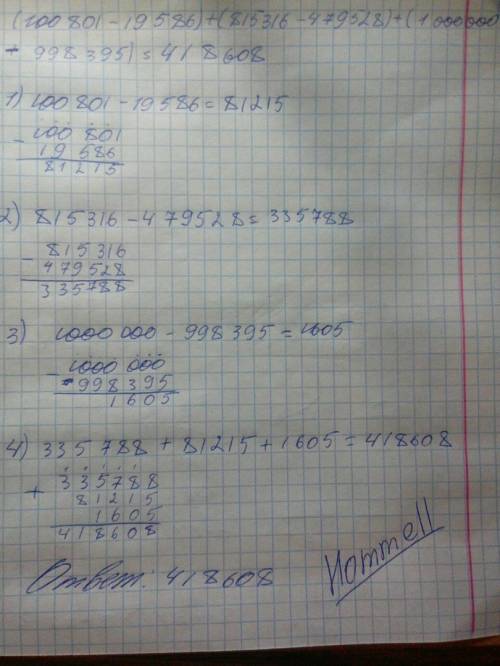 (100 801 - 19 586) + (815316 - 479528) + (1 000 000
- 998 395) = 418608
1) 100 801 - 19 586 = 81215
- 100 801
19 586
81215
2) 815316 - 479528 = 335788
- 815316
479528
335788
3) 1000 000 - 998 395 = 1605
- 1000 000
998395
1605
4) 335 788 + 81215 + 1605 = 418608
+ 335788
81215
1605
418608
Ответ: 418608
Hommell